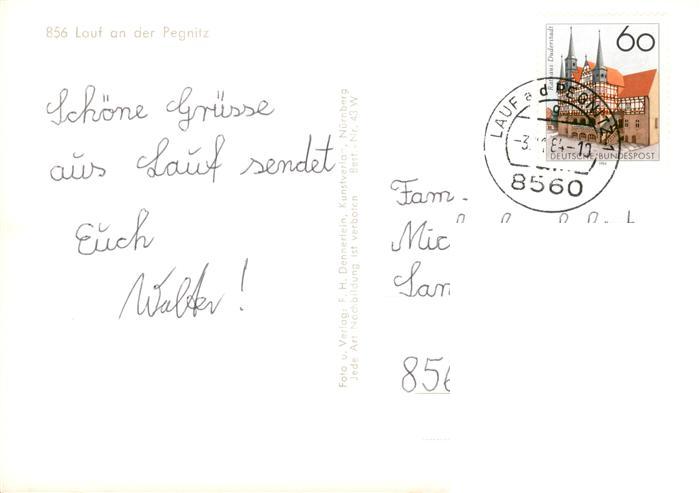 856 Lauf an der Pegnitz
Schöne Grüsse
aus Lauf sendet
Euch
Walter!
Foto u. Verlag: F. H. Dennerlein, Kunstverlag, Nürnberg
Jede Art Nachbildung ist verboten Best.-Nr. 43 W
60
Rathaus Duderstadt
DEUTSCHE BUNDESPOST
LAUF a d PEGNITZ 1
8560
Fam.
Mic
San
856